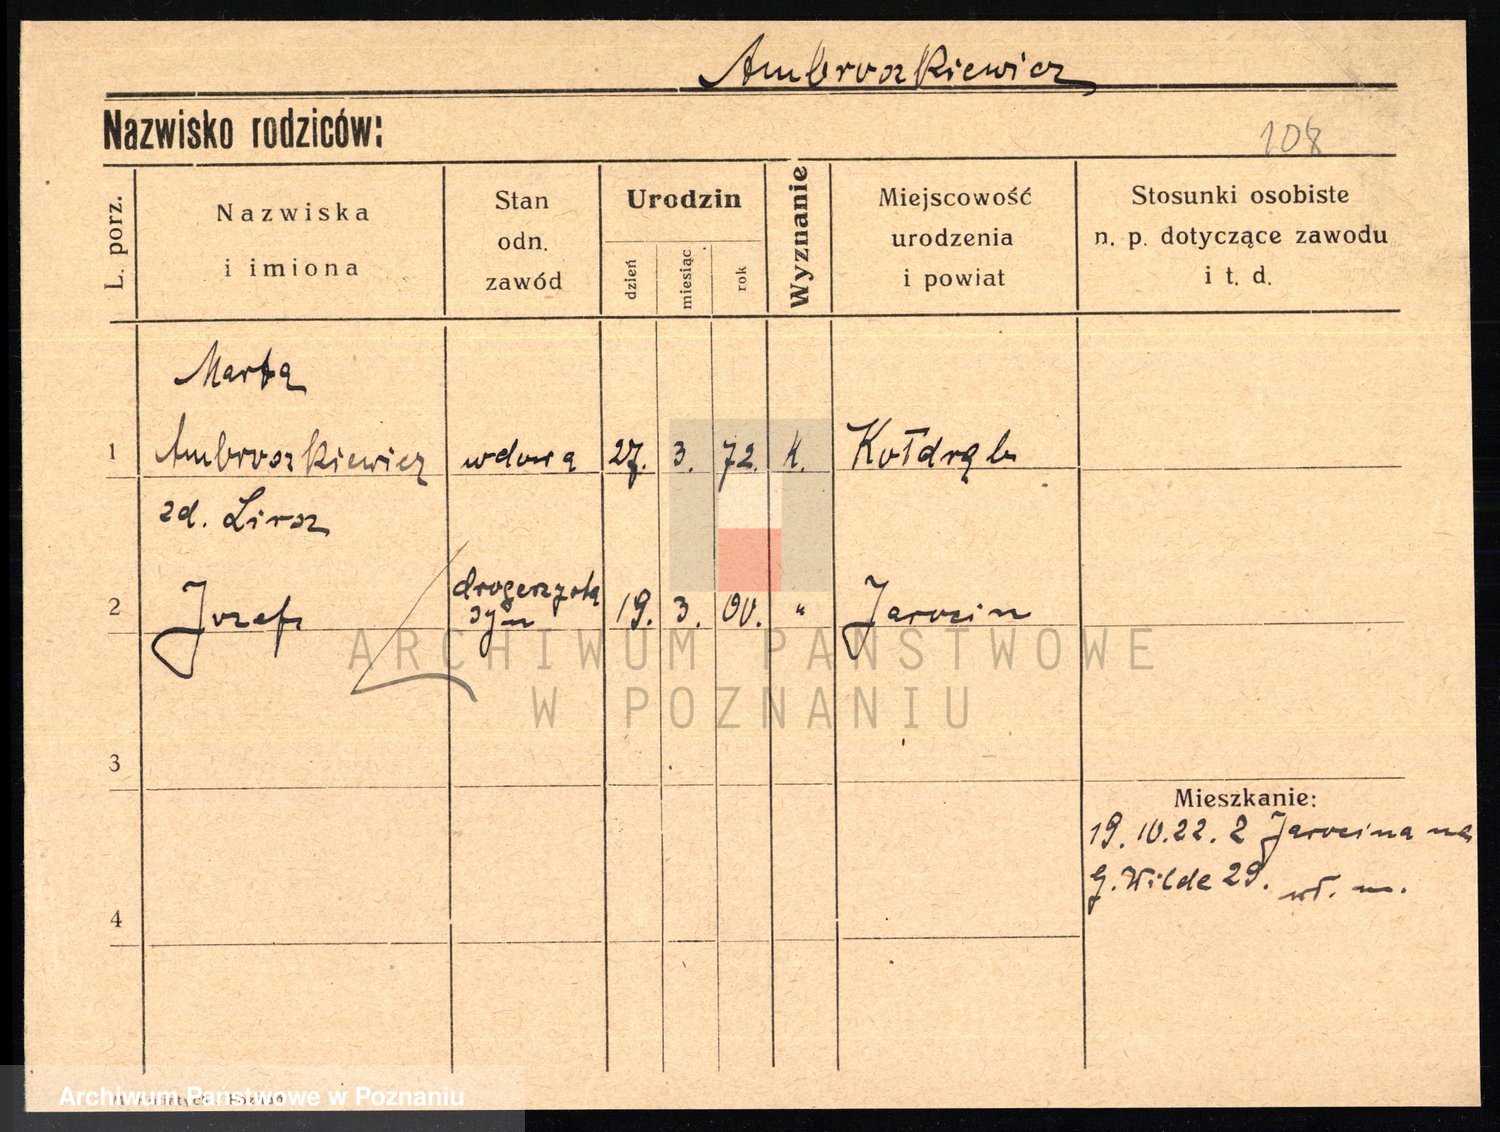 Ambroszkiewicz
Nazwisko rodziców:
108
L. porz.
Nazwiska
i imiona
Stan
odn.
zawód
Urodzin
dzień
miesiąc
rok
Wyznanie
Miejscowość
urodzenia
i powiat
Stosunki osobiste
n. p. dotyczące zawodu
i t. d.
Marta
1 Ambroszkiewicz wdowa 27. 3. 72. K. Kołdrąb
zd. Lirsz
drogerzysta
2 Józef syn 19. 3. 00. " Jarocin
ARCHIWUM PAŃSTWOWE
W POZNANIU
3
Mieszkanie:
19.10.22. z Jarocina na
G. Wilde 29. wł. m.
4
Archiwum Państwowe w Poznaniu